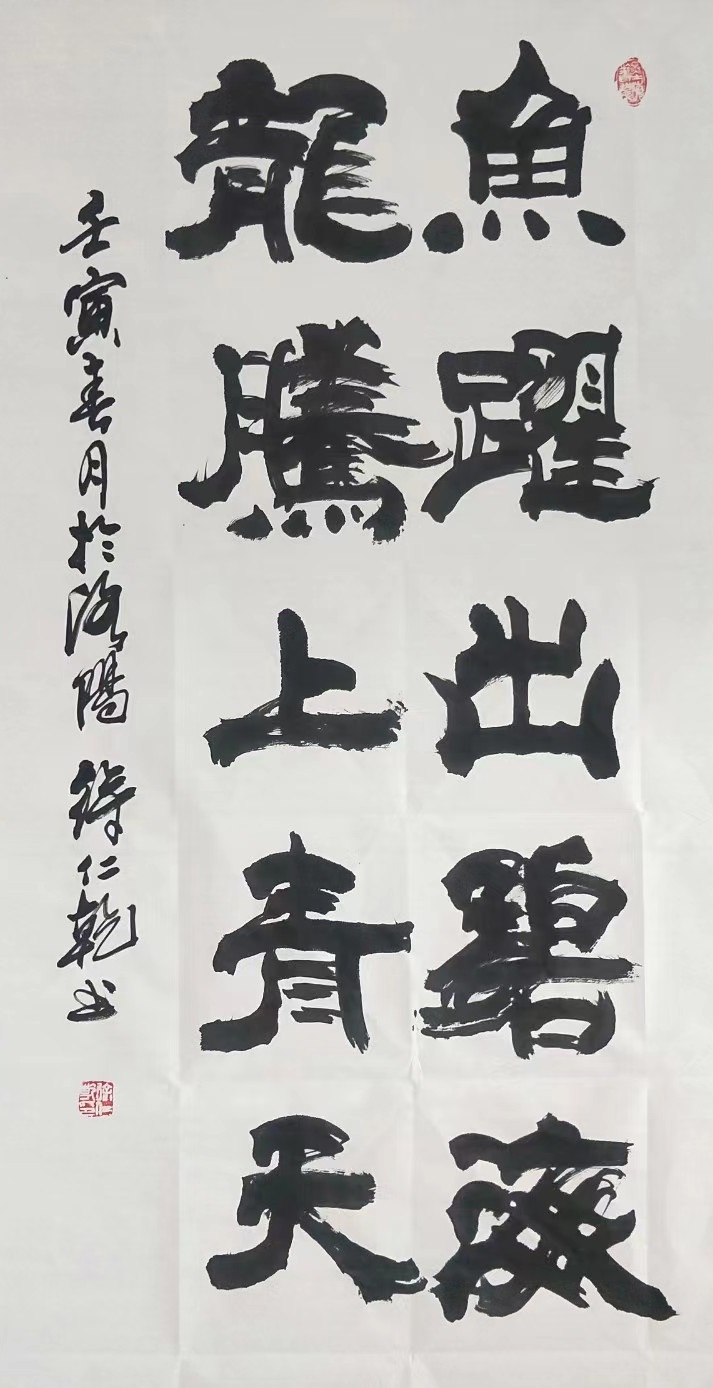 魚躍出碧
龍騰上青天
壬寅春月於洛陽 徐仁乾书